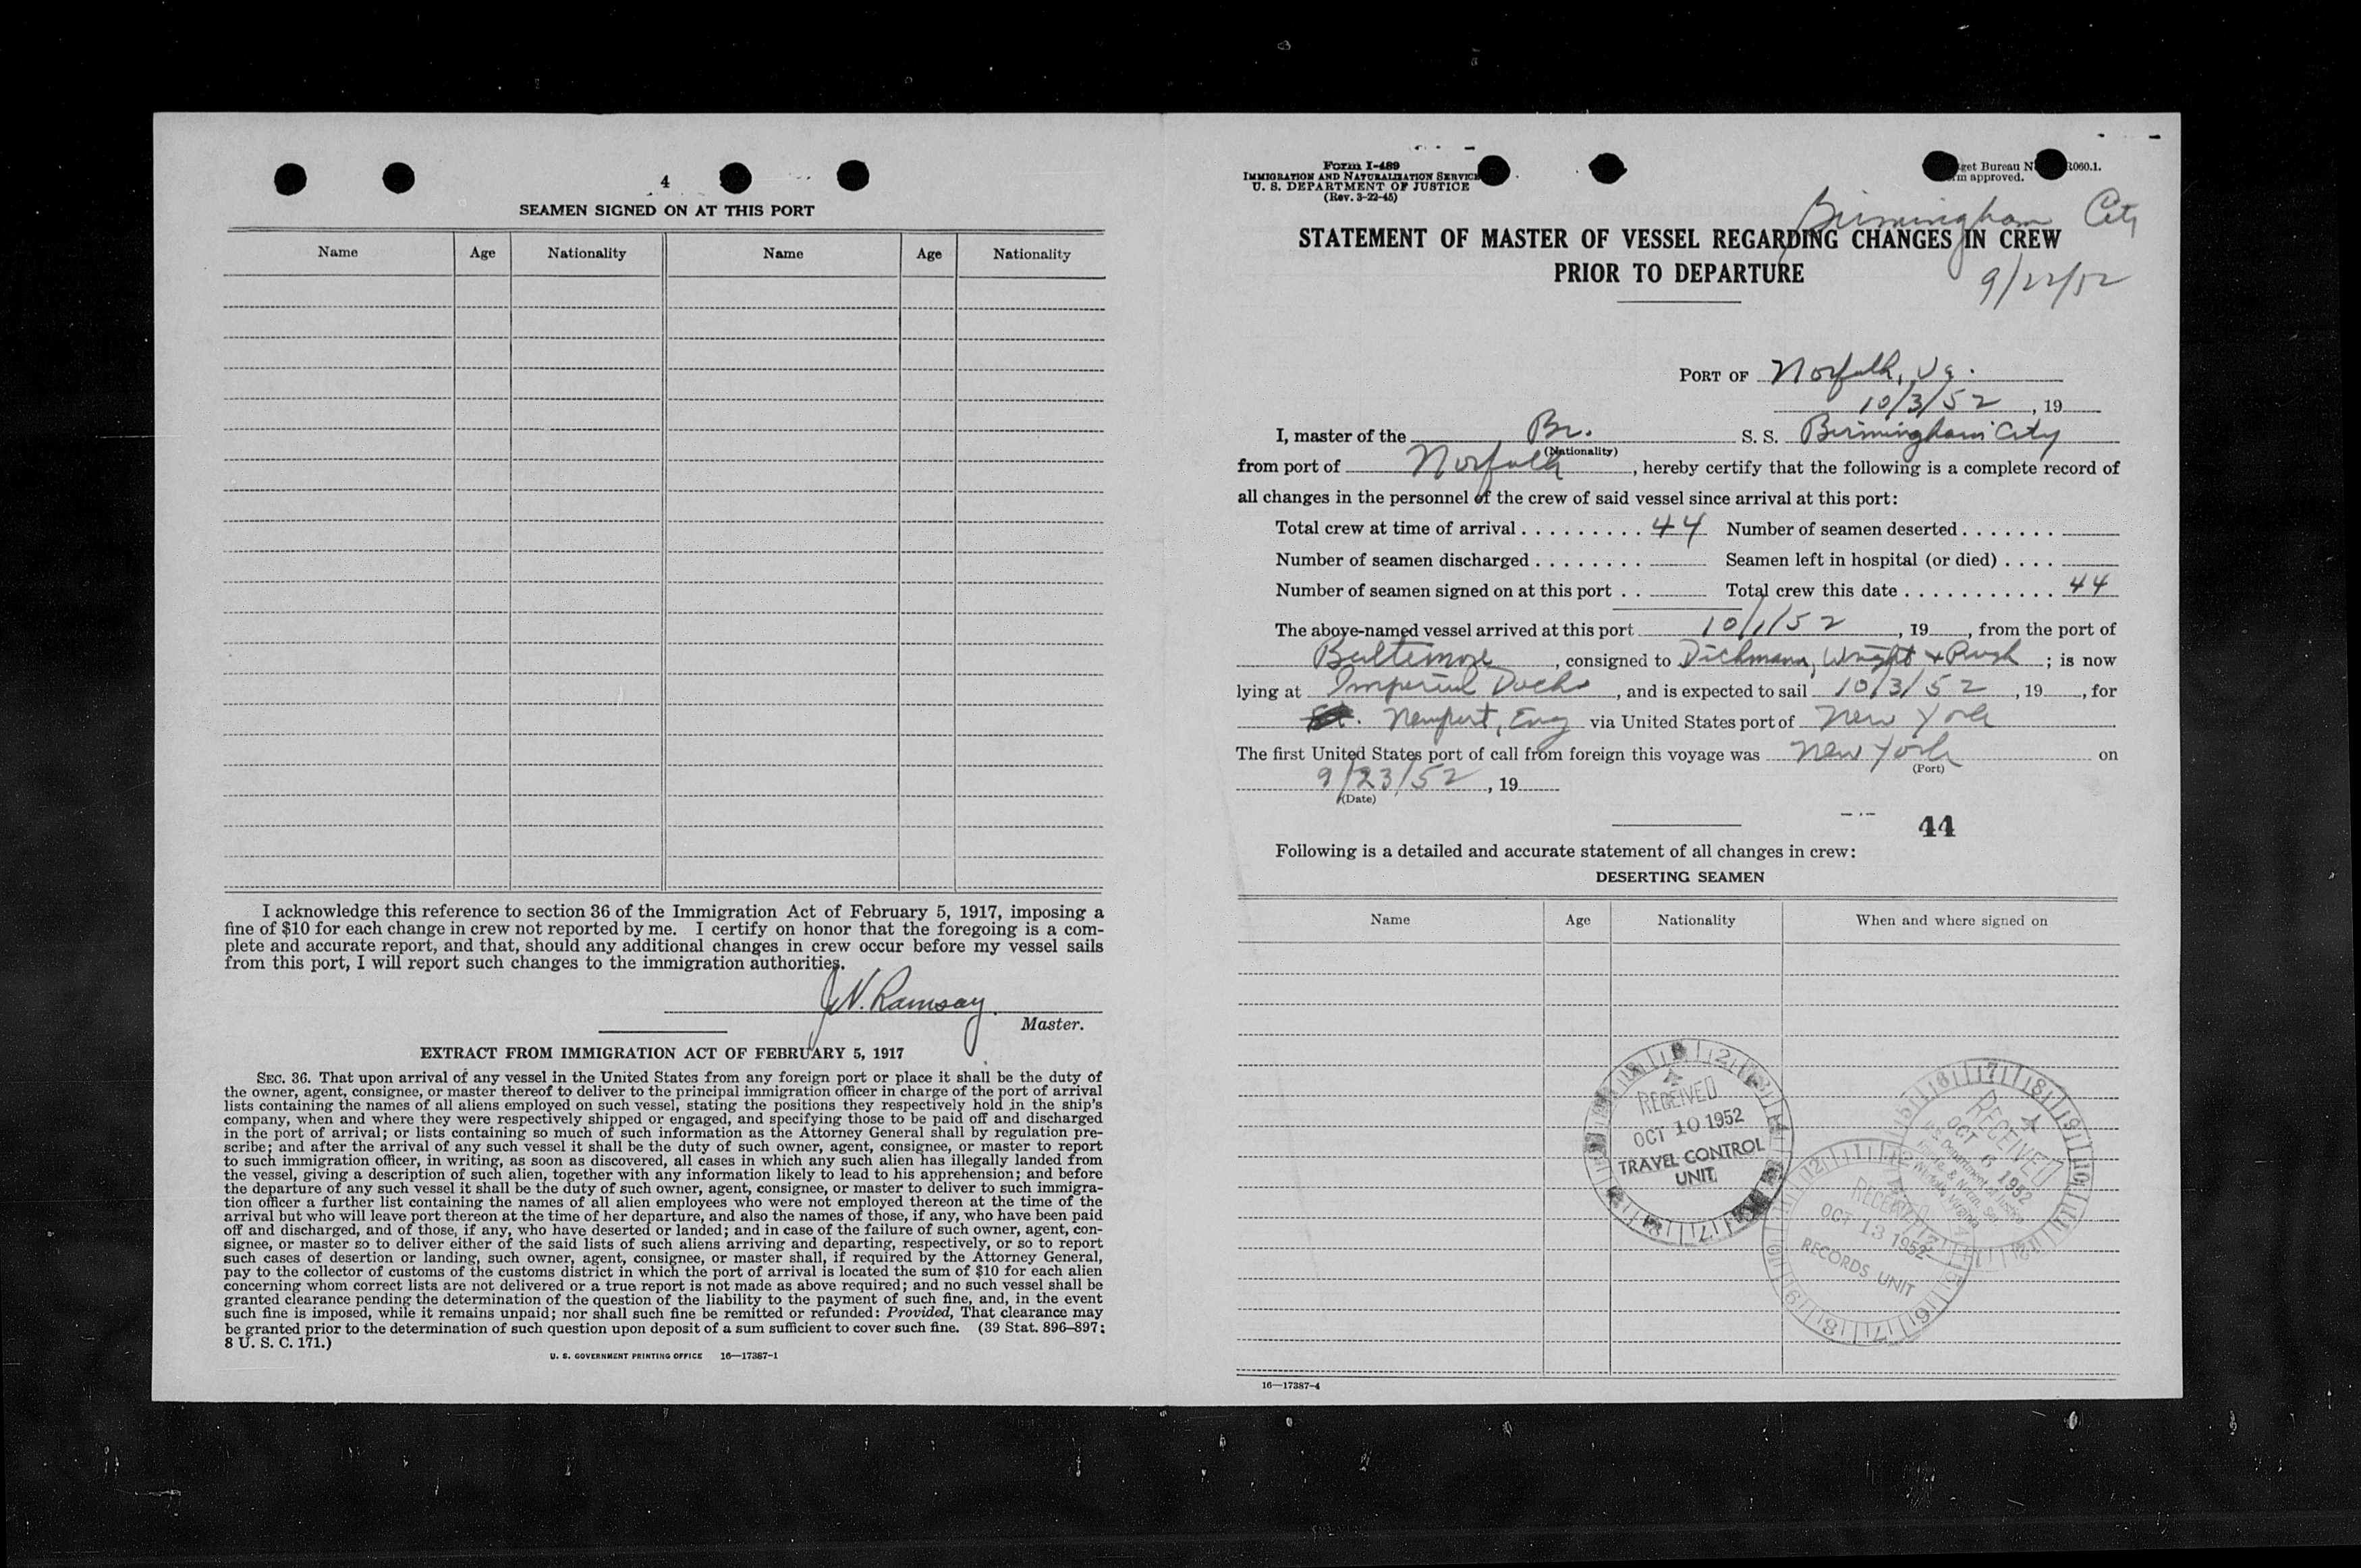 4
SEAMEN SIGNED ON AT THIS PORT
Name Age Nationality Name Age Nationality
I acknowledge this reference to section 36 of the Immigration Act of February 5, 1917, imposing a
fine of $10 for each change in crew not reported by me. I certify on honor that the foregoing is a com-
plete and accurate report, and that, should any additional changes in crew occur before my vessel sails
from this port, I will report such changes to the immigration authorities.
J.N. Ramsay.
Master.
EXTRACT FROM IMMIGRATION ACT OF FEBRUARY 5, 1917
SEC. 36. That upon arrival of any vessel in the United States from any foreign port or place it shall be the duty of
the owner, agent, consignee, or master thereof to deliver to the principal immigration officer in charge of the port of arrival
lists containing the names of all aliens employed on such vessel, stating the positions they respectively hold in the ship's
company, when and where they were respectively shipped or engaged, and specifying those to be paid off and discharged
in the port of arrival; or lists containing so much of such information as the Attorney General shall by regulation pre-
scribe; and after the arrival of any such vessel it shall be the duty of such owner, agent, consignee, or master to report
to such immigration officer, in writing, as soon as discovered, all cases in which any such alien has illegally landed from
the vessel, giving a description of such alien, together with any information likely to lead to his apprehension; and before
the departure of any such vessel it shall be the duty of such owner, agent, consignee, or master to deliver to such immigra-
tion officer a further list containing the names of all alien employees who were not employed thereon at the time of the
arrival but who will leave port thereon at the time of her departure, and also the names of those, if any, who have been paid
off and discharged, and of those, if any, who have deserted or landed; and in case of the failure of such owner, agent, con-
signee, or master so to deliver either of the said lists of such aliens arriving and departing, respectively, or so to report
such cases of desertion or landing, such owner, agent, consignee, or master shall, if required by the Attorney General,
pay to the collector of customs of the customs district in which the port of arrival is located the sum of $10 for each alien
concerning whom correct lists are not delivered or a true report is not made as above required; and no such vessel shall be
granted clearance pending the determination of the question of the liability to the payment of such fine, and, in the event
such fine is imposed, while it remains unpaid; nor shall such fine be remitted or refunded: Provided, That clearance may
be granted prior to the determination of such question upon deposit of a sum sufficient to cover such fine. (39 Stat. 896–897;
8 U. S. C. 171.)
U. S. GOVERNMENT PRINTING OFFICE 16—17387-1
Form I-489
IMMIGRATION AND NATURALIZATION SERVICE
U. S. DEPARTMENT OF JUSTICE
(Rev. 3-22-45)
get Bureau N R060.1.
m approved.
Birmingham City
STATEMENT OF MASTER OF VESSEL REGARDING CHANGES IN CREW
PRIOR TO DEPARTURE
9/22/52
PORT OF Norfolk, Va.
10/3/52, 19
I, master of the Br. S. S. Birmingham City
(Nationality)
from port of Norfolk, hereby certify that the following is a complete record of
all changes in the personnel of the crew of said vessel since arrival at this port:
Total crew at time of arrival . . . . . . . . . 44 Number of seamen deserted . . . . . . .
Number of seamen discharged . . . . . . . . Seamen left in hospital (or died) . . . .
Number of seamen signed on at this port . . Total crew this date . . . . . . . . . . . 44
The above-named vessel arrived at this port 10/1/52, 19, from the port of
Baltimore, consigned to Dichmann, Wright & Pugh; is now
lying at Imperial Docks, and is expected to sail 10/3/52, 19, for
Newport, Eng via United States port of New York
The first United States port of call from foreign this voyage was New York on
(Port)
9/23/52, 19
(Date)
44
Following is a detailed and accurate statement of all changes in crew:
DESERTING SEAMEN
Name Age Nationality When and where signed on
RECEIVED
OCT 10 1952
TRAVEL CONTROL
UNIT
RECEIVED
OCT 6 1952
U. S. Department of Justice
Immig. & Natzn. Ser.
Norfolk, Virginia
RECEIVED
OCT 13 1952
RECORDS UNIT
16—17387-4